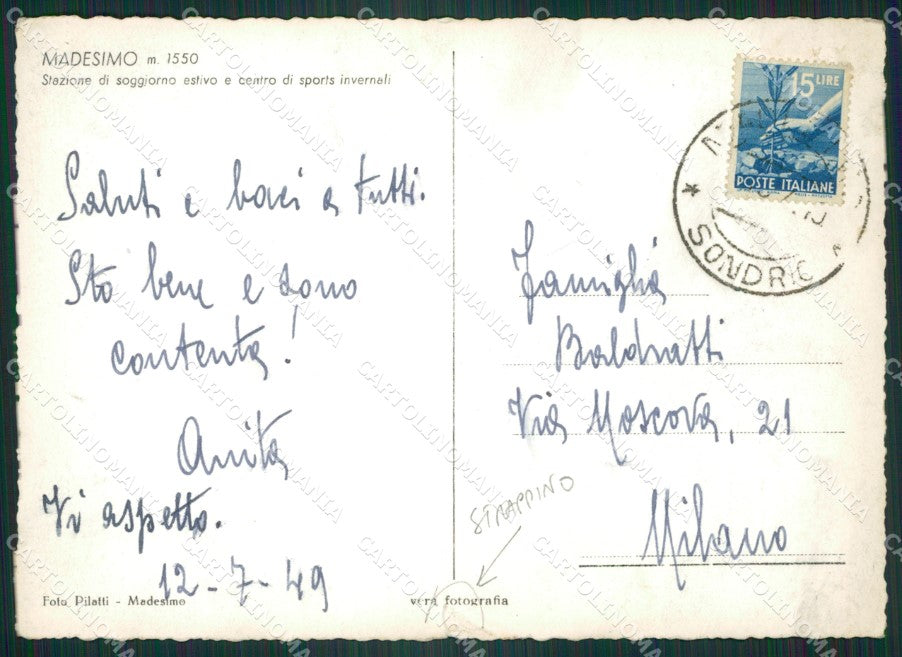 MADESIMO m. 1550
Stazione di soggiorno estivo e centro di sports invernali
Saluti e baci a tutti.
Sto bene e sono
contenta!
Anita
Vi aspetto.
12-7-49
Foto Pilatti - Madesimo
vera fotografia
STRAPPINO
15 LIRE
POSTE ITALIANE
SONDRIO
Famiglia
Baldratti
Via Moscova, 21
Milano
CARTOLINOMANIA